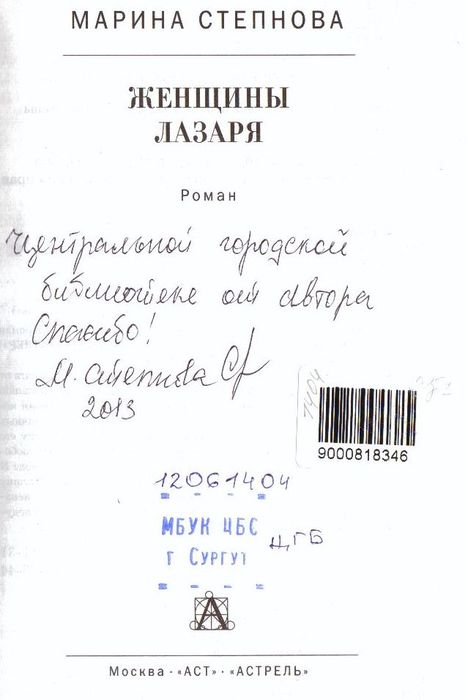 МАРИНА СТЕПНОВА
ЖЕНЩИНЫ
ЛАЗАРЯ
Роман
Центральной городской
библиотеке от автора
Спасибо!
М. Степнова
2013
1404
9000818346
12061404
МБУК ЦБС
г Сургут
ЦГБ
А
Москва · «АСТ» · «АСТРЕЛЬ»